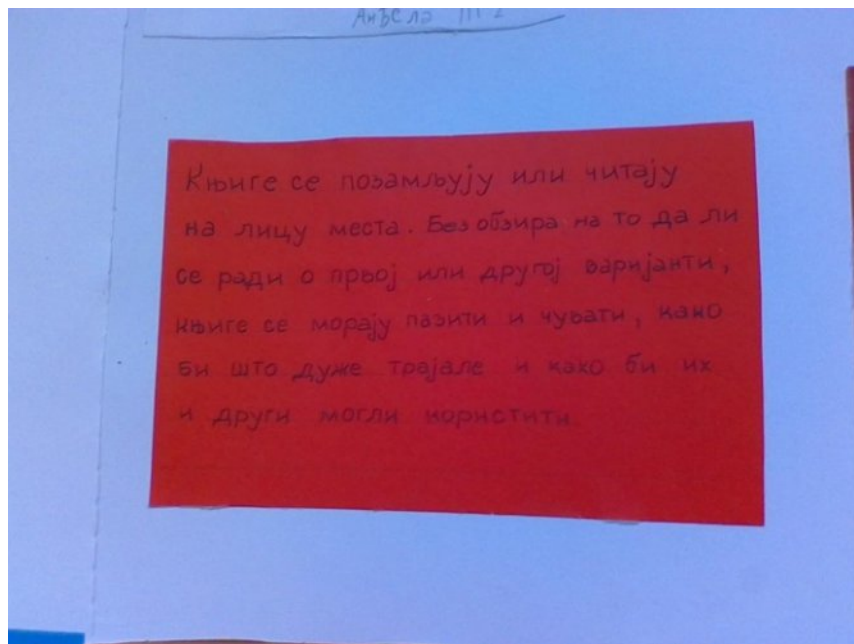 Анђела III 2
Књиге се позамљују или читају
на лицу места. Без обзира на то да ли
се ради о првој или другој варијанти,
књиге се морају пазити и чувати, како
би што дуже трајале и како би их
и други могли користити.